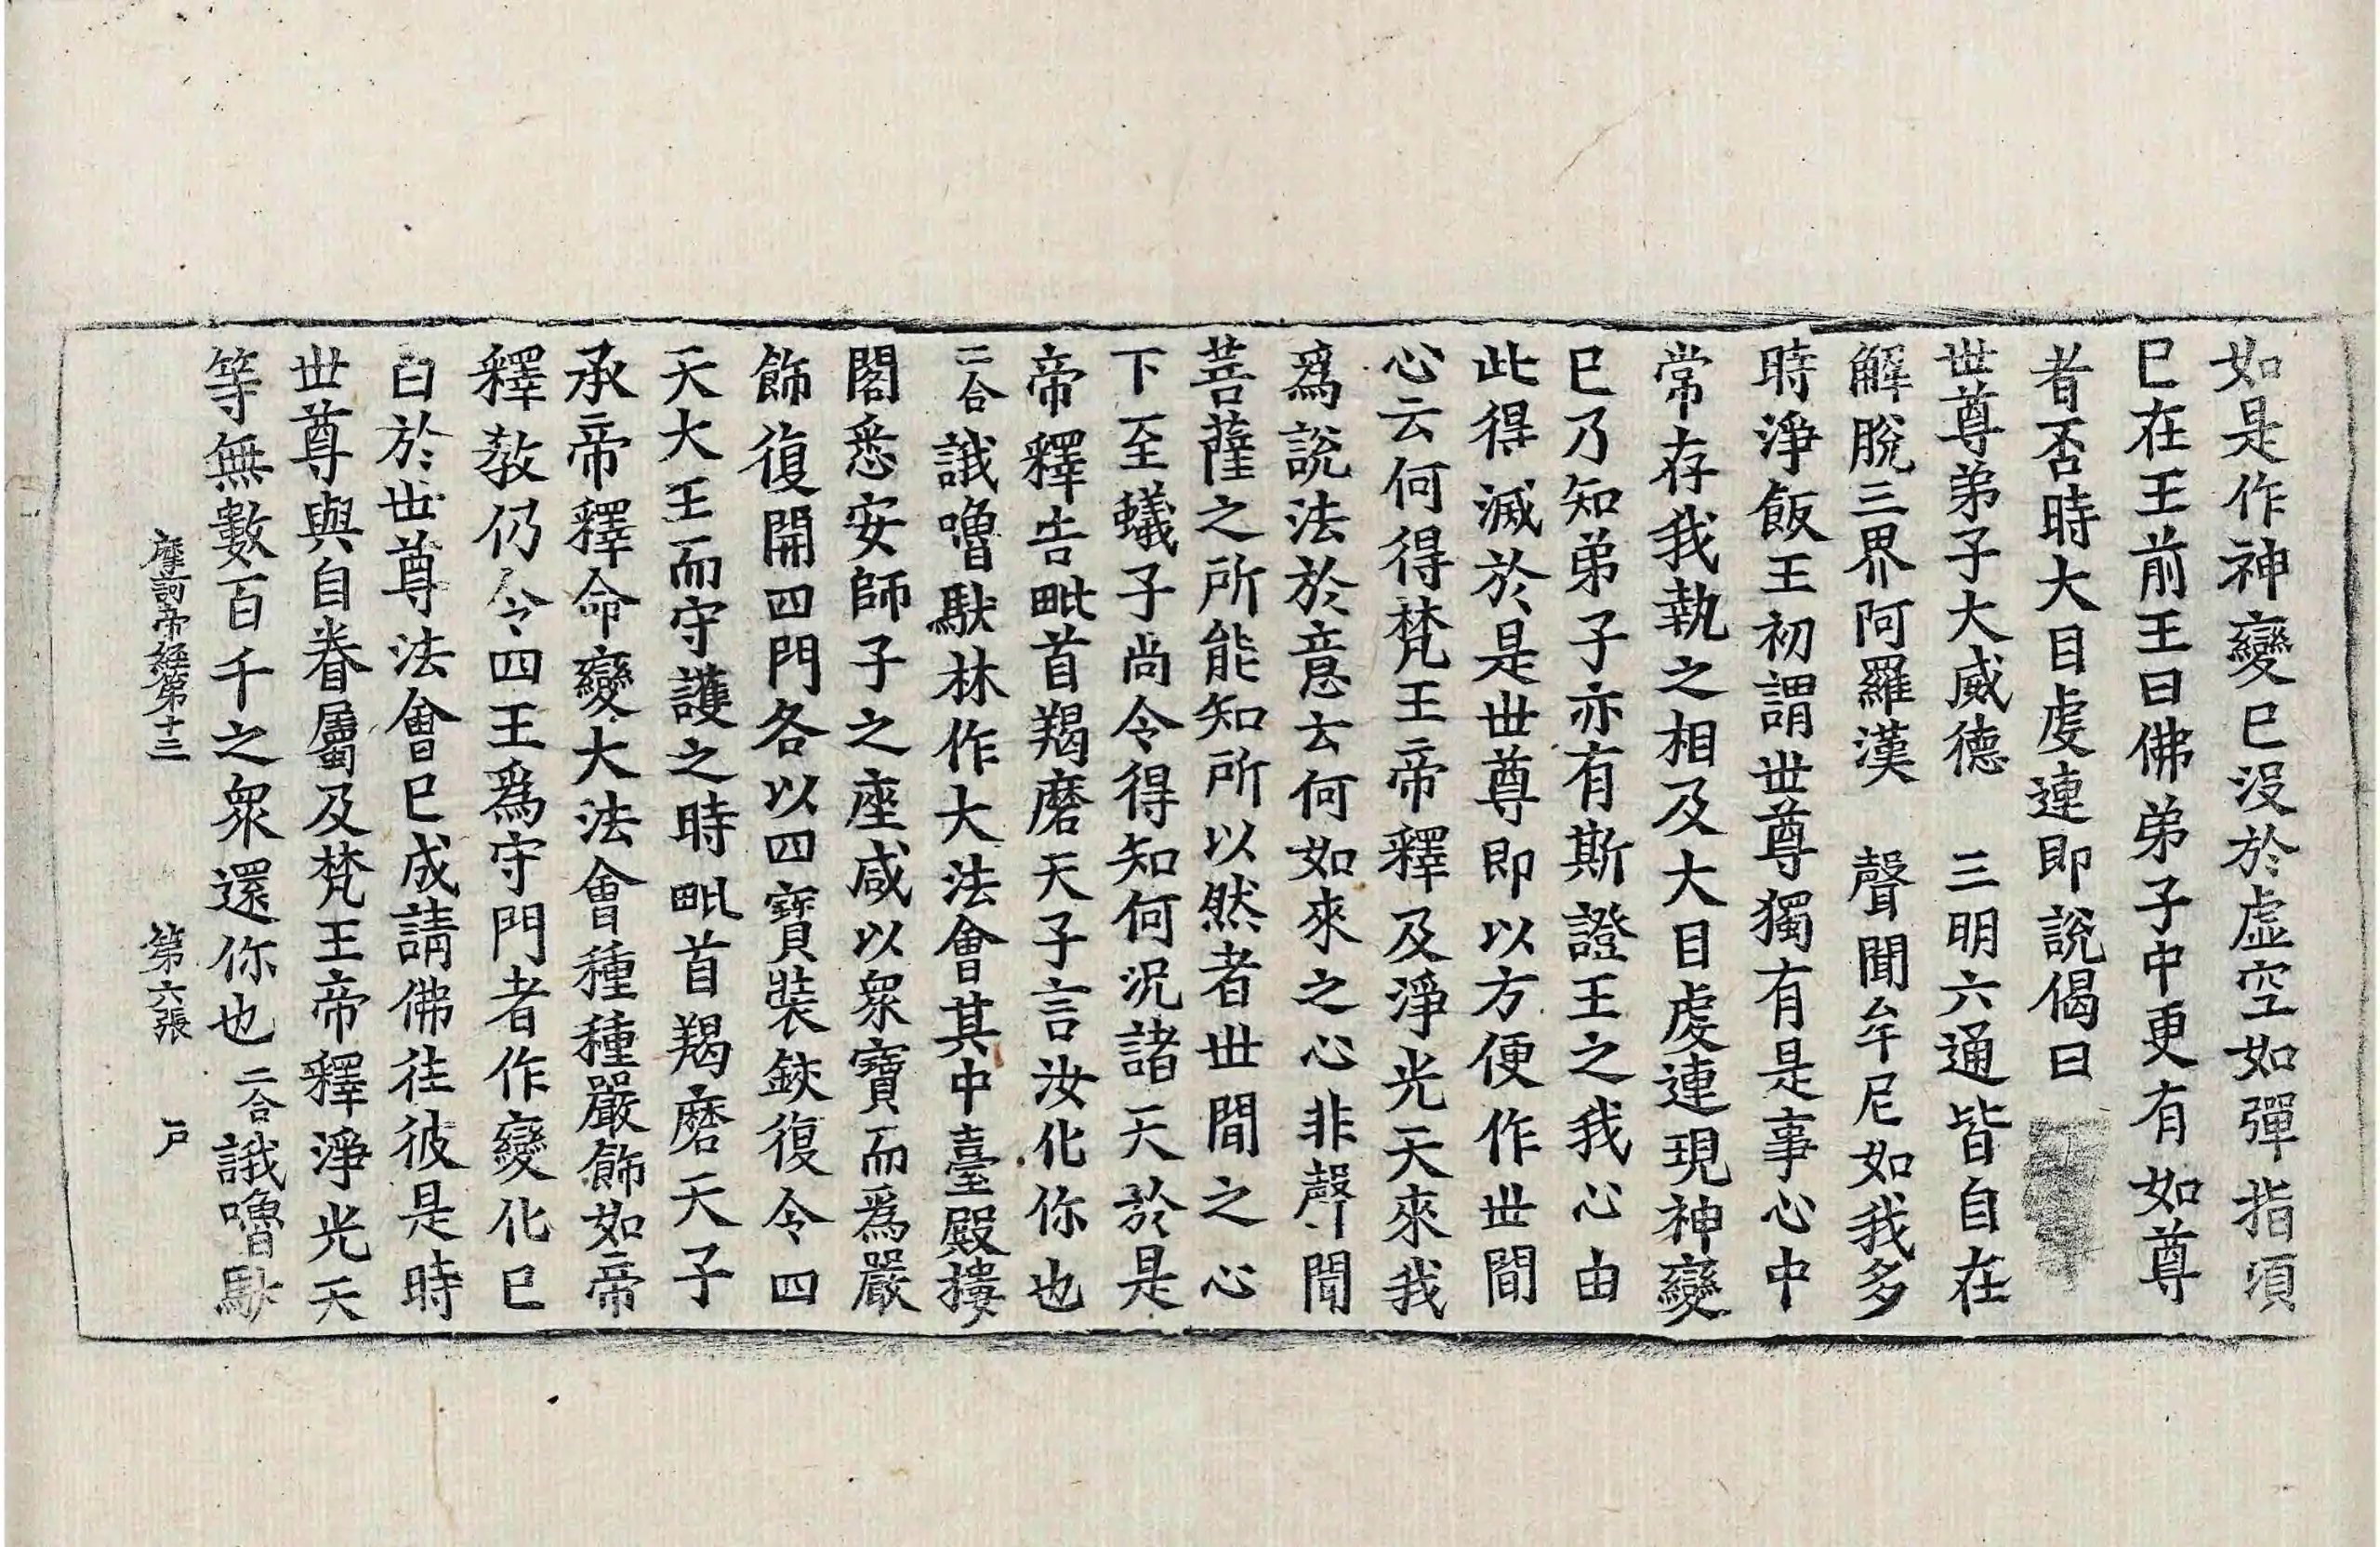 如是作神變已沒於虛空如彈指頃
已在王前王曰佛弟子中更有如尊
者否時大目虔連即說偈曰
世尊弟子大威德　三明六通皆自在
解脫三界阿羅漢　聲聞牟尼如我多
時淨飯王初謂世尊獨有是事心中
常存我執之相及大目虔連現神變
已乃知弟子亦有斯證王之我心由
此得滅於是世尊即以方便作世間
心云何得梵王帝釋及淨光天來我
為說法於意云何如來之心非聲聞
菩薩之所能知所以然者世間之心
下至蟻子尚令得知何況諸天於是
帝釋告毗首羯磨天子言汝化你也
二合誐嚕馱林作大法會其中臺殿摟
閣悉安師子之座咸以眾寶而為嚴
飾復開四門各以四寶裝鋏復令四
天大王而守護之時毗首羯磨天子
承帝釋命變大法會種種嚴飾如帝
釋教仍令四王為守門者作變化已
白於世尊法會已成請佛往彼是時
世尊與自眷屬及梵王帝釋淨光天
等無數百千之眾還你也二合誐嚕馱
摩訶帝經第十三　第六張　戶